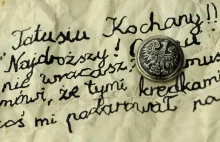 Tatusiu Kochany!!
Najdroższy!
nie wracasz mus
mówi, że tymi kredkami
oś mi podarował na